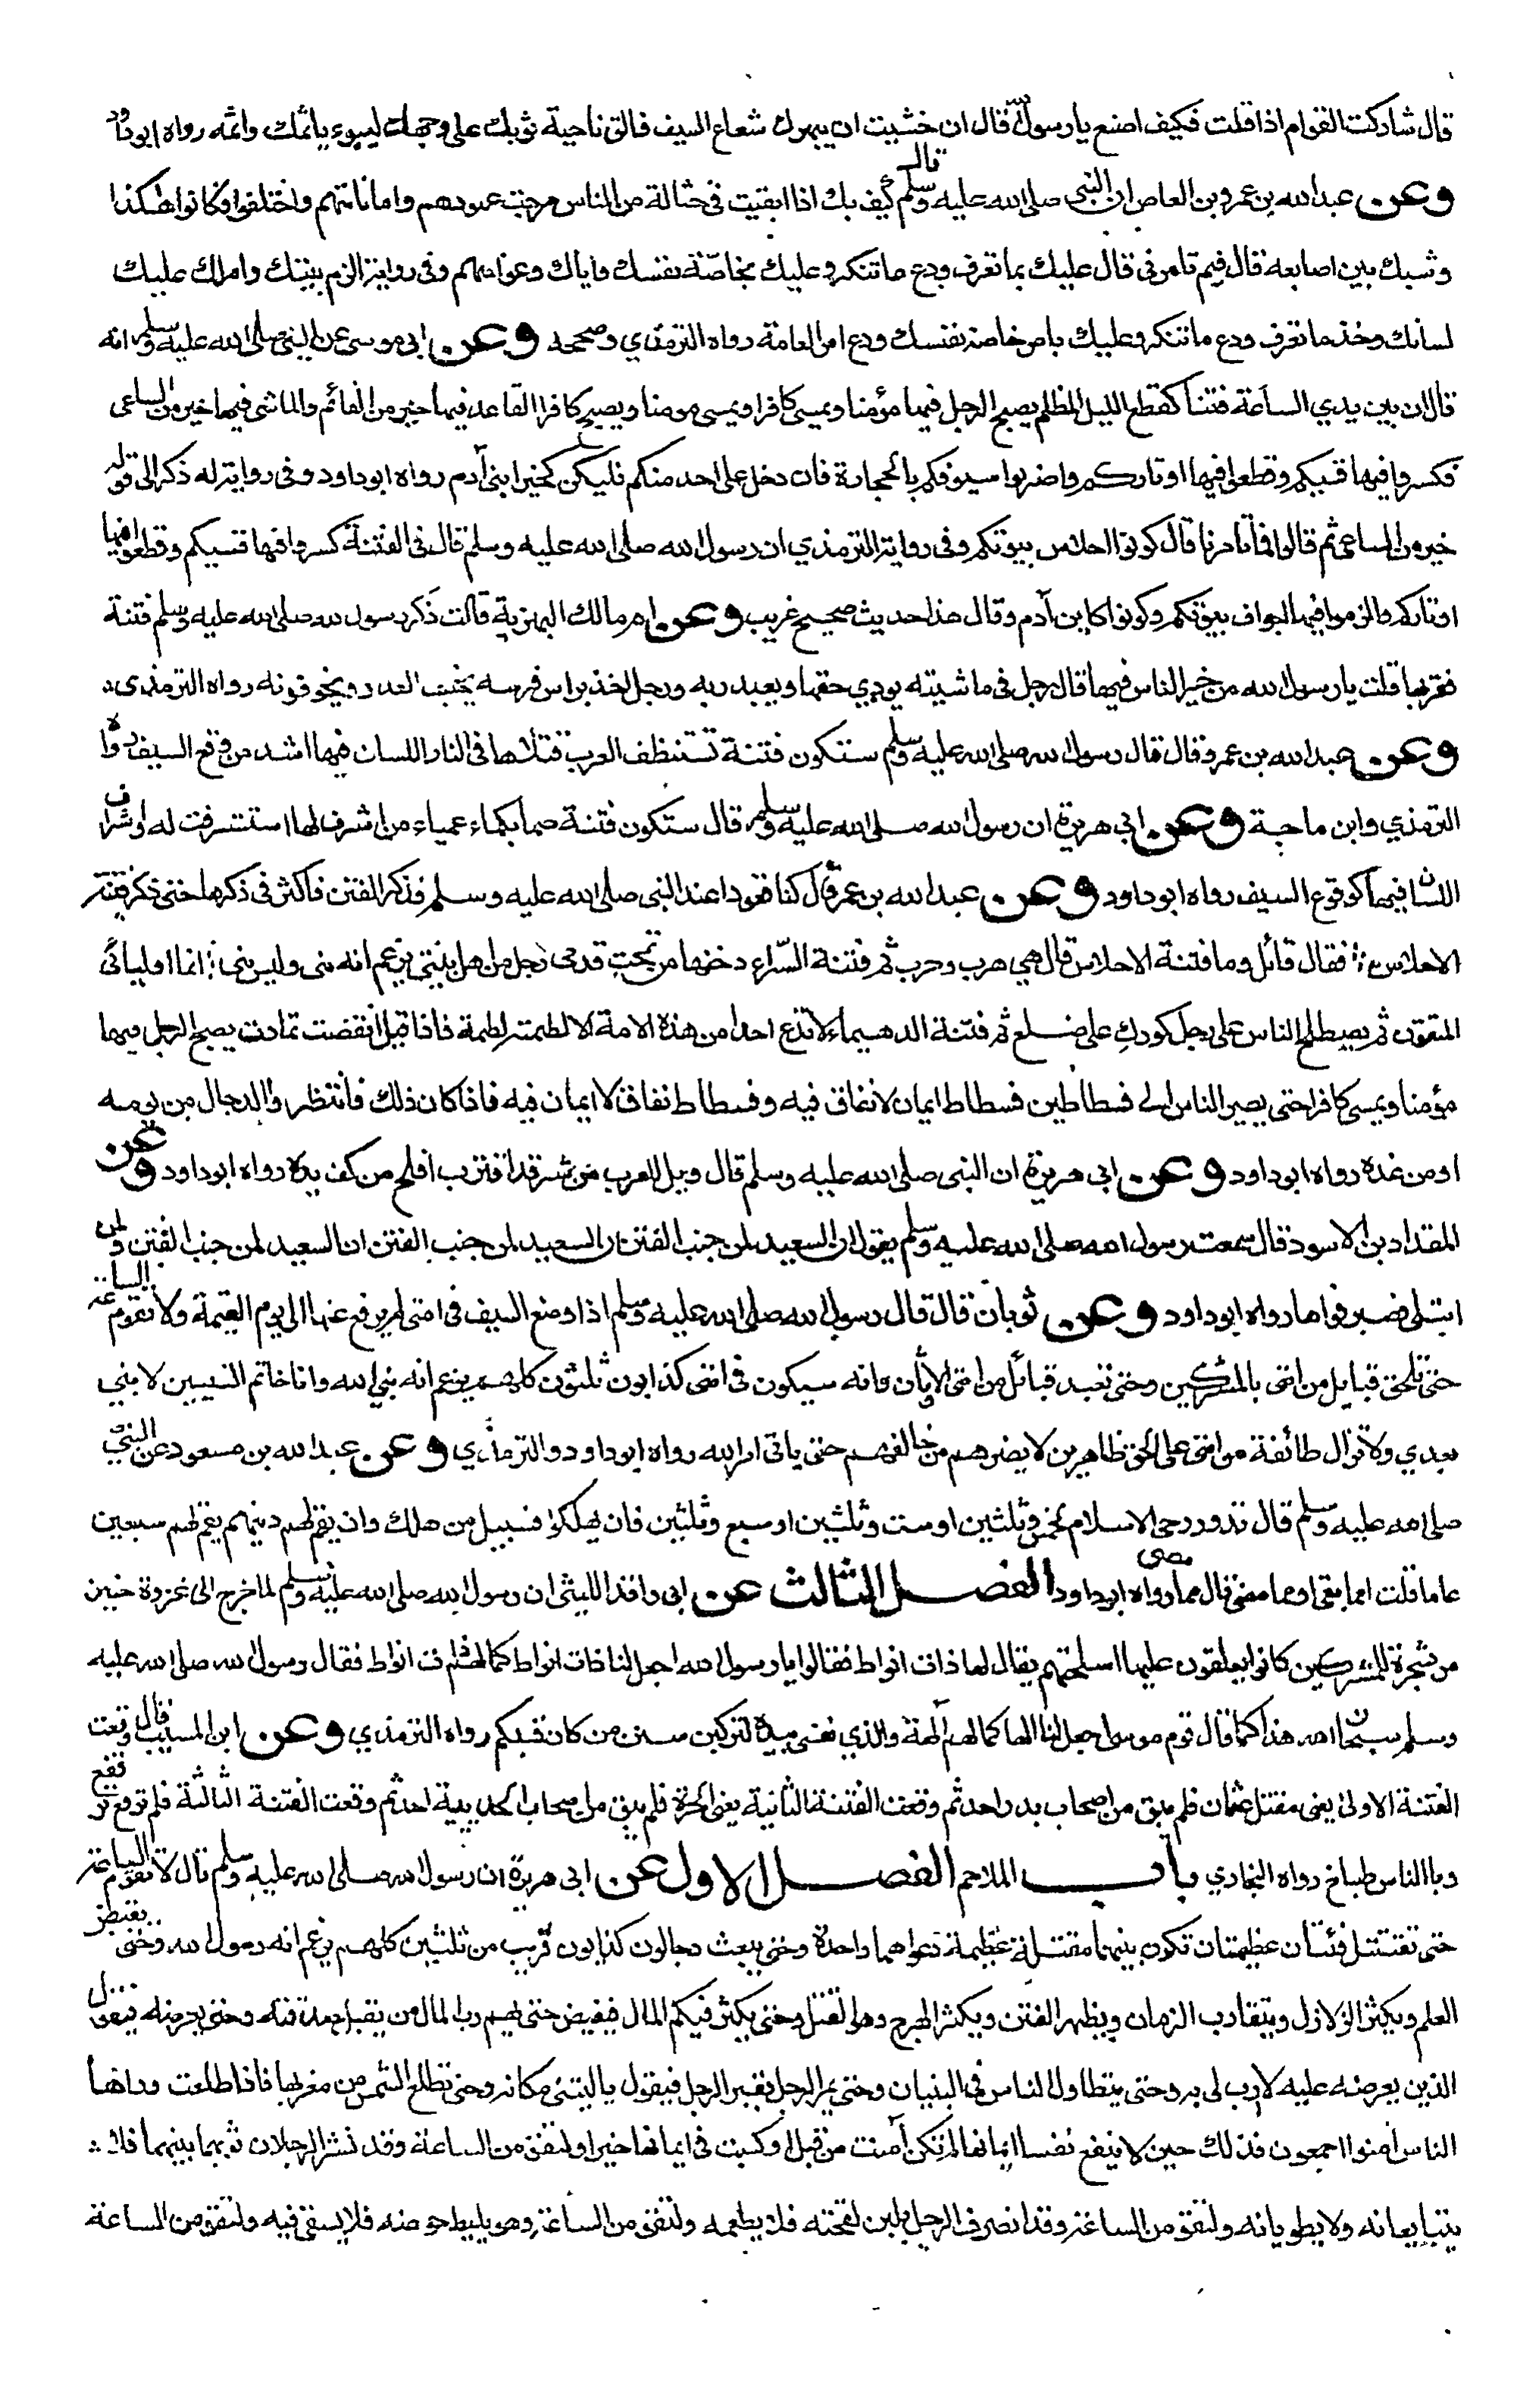 قال شاركت القوام اذا قلت فكيف اصنع يا رسول الله قال ان خشيت ان يبهرك شعاع السيف فالق ناحية ثوبك على وجهك ليبوء باثمك واثمه رواه ابو داود
وعن عبد الله بن عمرو بن العاص ان النبي صلى الله عليه وسلم قال كيف بك اذا ابقيت في حثالة من الناس مرجت عهودهم واماناتهم واختلفوا فكانوا هكذا
وشبك بين اصابعه قال فبم تامرني قال عليك بما تعرف ودع ما تنكر وعليك بخاصّة نفسك واياك وعوامهم وفي رواية الزم بيتك واملك عليك
لسانك وخذ ما تعرف ودع ما تنكر وعليك بامر خاصة نفسك ودع امر العامة رواه الترمذي وصححه وعن ابي موسى عن النبي صلى الله عليه وسلم انه
قال ان بين يدي الساعة فتنا كقطع الليل المظلم يصبح الرجل فيها مؤمنا ويمسي كافرا ويمسي مومنا ويصبح كافرا القاعد فيها خير من القائم والماشي فيها خير من الساعي
فكسروا فيها قسيكم وقطعوا فيها اوتاركم واضربوا سيوفكم بالحجارة فان دخل على احد منكم فليكن كخير ابني آدم رواه ابو داود وفي رواية له ذكر الى قوله
خير من الساعي ثم قالوا فما تامرنا قال كونوا احلاس بيوتكم وفي رواية الترمذي ان رسول الله صلى الله عليه وسلم قال في الفتنة كسروا فيها قسيكم وقطعوا فيها
اوتاركم والزموا فيها اجواف بيوتكم وكونوا كابن آدم وقال هذا حديث صحيح غريب وعن ام مالك البهزية قالت ذكر رسول الله صلى الله عليه وسلم فتنة
فقربها قلت يا رسول الله من خير الناس فيها قال رجل في ماشيته يودي حقها ويعبد ربه ورجل اخذ براس فرسه يخيف العدو ويخوفونه رواه الترمذي
وعن عبد الله بن عمرو قال قال رسول الله صلى الله عليه وسلم ستكون فتنة تستنظف العرب قتلاها في النار اللسان فيها اشد من وقع السيف رواه
الترمذي وابن ماجة وعن ابي هريرة ان رسول الله صلى الله عليه وسلم قال ستكون فتنة صما بكماء عمياء من اشرف لها استشرفت له واشراف
اللسان فيها كوقوع السيف رواه ابو داود وعن عبد الله بن عمر قال كنا قعودا عند النبي صلى الله عليه وسلم فذكر الفتن فاكثر في ذكرها حتى ذكر فتنة
الاحلاس فقال قائل وما فتنة الاحلاس قال هي هرب وحرب ثم فتنة السّراء دخنها من تحت قدمي رجل من اهل بيتي يزعم انه مني وليس مني انما اوليائي
المتقون ثم يصطلح الناس على رجل كورك على ضلع ثم فتنة الدهيماء لا تدع احدا من هذه الامة الا لطمته لطمة فاذا قيل انقضت تمادت يصبح الرجل فيها
مؤمنا ويمسي كافرا حتى يصير الناس الى فسطاطين فسطاط ايمان لا نفاق فيه وفسطاط نفاق لا ايمان فيه فاذا كان ذلك فانتظروا الدجال من يومه
او من غده رواه ابو داود وعن ابي هريرة ان النبي صلى الله عليه وسلم قال ويل للعرب من شر قد اقترب افلح من كف يده رواه ابو داود وعن
المقداد بن الاسود قال سمعت رسول الله صلى الله عليه وسلم يقول ان السعيد لمن جنب الفتن ان السعيد لمن جنب الفتن ان السعيد لمن جنب الفتن ولمن
ابتلي فصبر فواها رواه ابو داود وعن ثوبان قال قال رسول الله صلى الله عليه وسلم اذا وضع السيف في امتي لم يرفع عنها الى يوم القيمة ولا تقوم الساعة
حتى تلحق قبايل من امتي بالمشركين وحتى تعبد قبائل من امتي الاوثان وانه سيكون في امتي كذابون ثلثون كلهم يزعم انه نبي الله وانا خاتم النبيين لا نبي
بعدي ولا تزال طائفة من امتي على الحق ظاهرين لا يضرهم من خالفهم حتى ياتي امر الله رواه ابو داود والترمذي وعن عبد الله بن مسعود عن النبي
صلى الله عليه وسلم قال تدور رحى الاسلام لخمس وثلثين او ست وثلثين او سبع وثلثين فان يهلكوا فسبيل من هلك وان يقم لهم دينهم يقم لهم سبعين
عاما قلت امما بقي او مما مضى قال مما مضى رواه ابو داود الفصل الثالث عن ابي واقد الليثي ان رسول الله صلى الله عليه وسلم لما خرج الى غزوة حنين
مر بشجرة للمشركين كانوا يعلقون عليها اسلحتهم يقال لها ذات انواط فقالوا يا رسول الله اجعل لنا ذات انواط كما لهم ذات انواط فقال رسول الله صلى الله عليه
وسلم سبحان الله هذا كما قال قوم موسى اجعل لنا الها كما لهم آلهة والذي نفسي بيده لتركبن سنن من كان قبلكم رواه الترمذي وعن ابن المسيب قال وقعت
الفتنة الاولى يعني مقتل عثمان فلم يبق من اصحاب بدر احد ثم وقعت الفتنة الثانية يعني الحرة فلم يبق من اصحاب الحديبية احد ثم وقعت الفتنة الثالثة فلم ترتفع
وبالناس طباخ رواه البخاري باب الملاحم الفصل الاول عن ابي هريرة ان رسول الله صلى الله عليه وسلم قال لا تقوم الساعة
حتى تقتتل فئتان عظيمتان تكون بينهما مقتلة عظيمة دعواهما واحدة وحتى يبعث دجالون كذابون قريب من ثلثين كلهم يزعم انه رسول الله وحتى يقبض
العلم ويكثر الزلازل ويتقارب الزمان ويظهر الفتن ويكثر الهرج وهو القتل وحتى يكثر فيكم المال فيفيض حتى يهم رب المال من يقبل صدقته وحتى يعرضه فيقول
الذي يعرضه عليه لا ارب لي به وحتى يتطاول الناس في البنيان وحتى يمر الرجل بقبر الرجل فيقول يا ليتني مكانه وحتى تطلع الشمس من مغربها فاذا طلعت وراها
الناس امنوا اجمعون فذلك حين لا ينفع نفسا ايمانها لم تكن آمنت من قبل او كسبت في ايمانها خيرا ولتقومن الساعة وقد نشر الرجلان ثوبهما بينهما فلا
يتبايعانه ولا يطويانه ولتقومن الساعة وقد انصرف الرجل بلبن لقحته فلا يطعمه ولتقومن الساعة وهو يليط حوضه فلا يسقي فيه ولتقومن الساعة